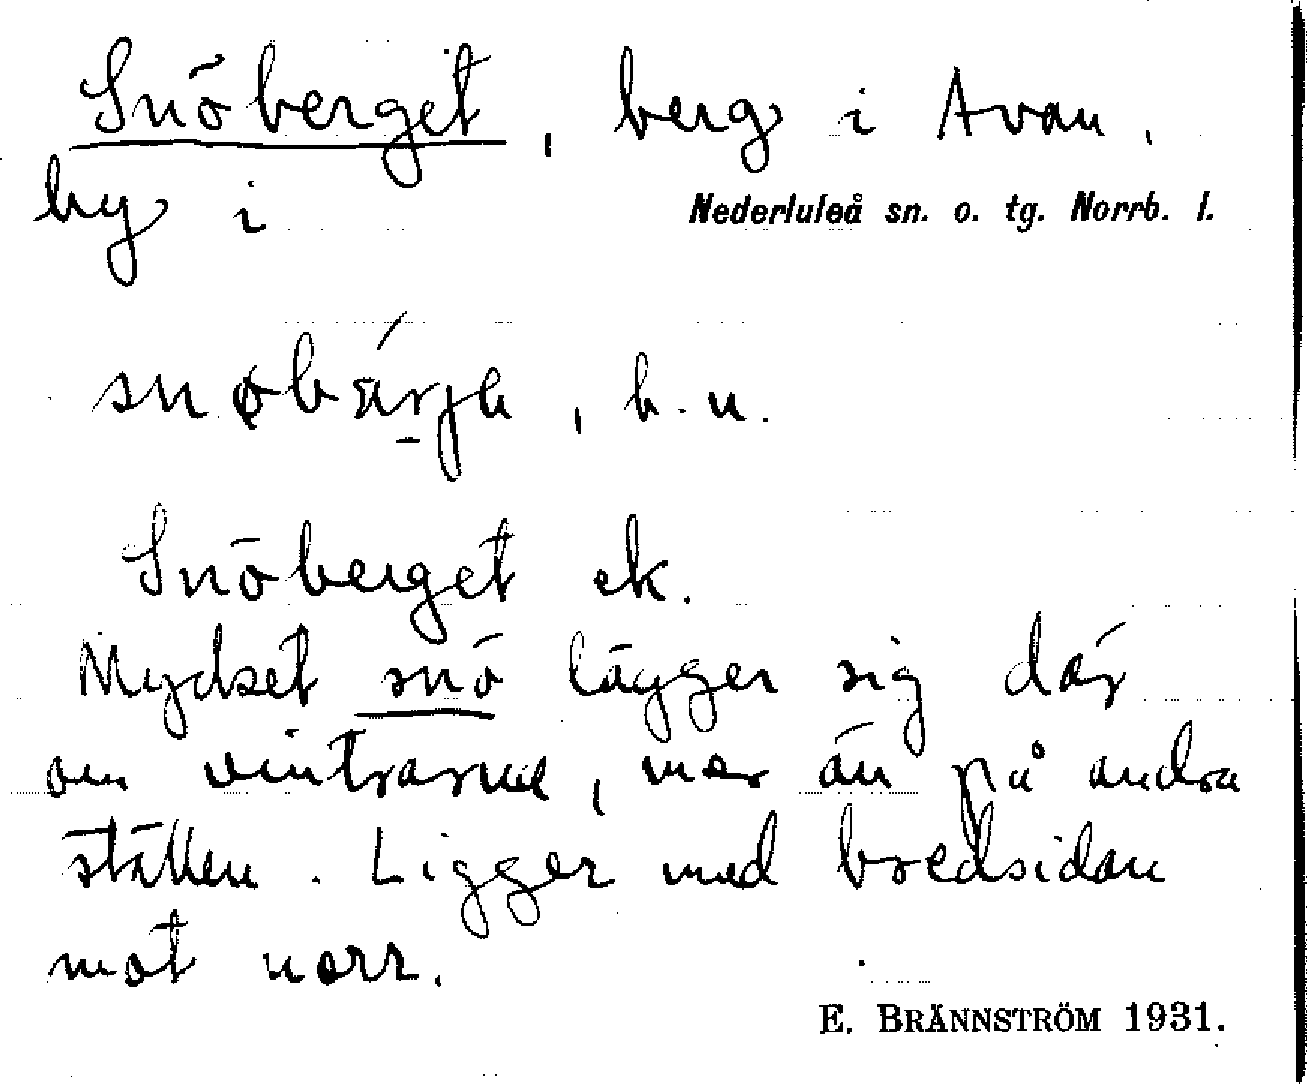 Snöberget, berg i Avan,
by i Nederluleå sn. o. tg. Norrb. l.
, b. u.
Snöberget ek.
Mycket snö lägger sig där
om vintrarna, mer än på andra
ställen. Ligger med bredsidan
mot norr.
E. BRÄNNSTRÖM 1931.